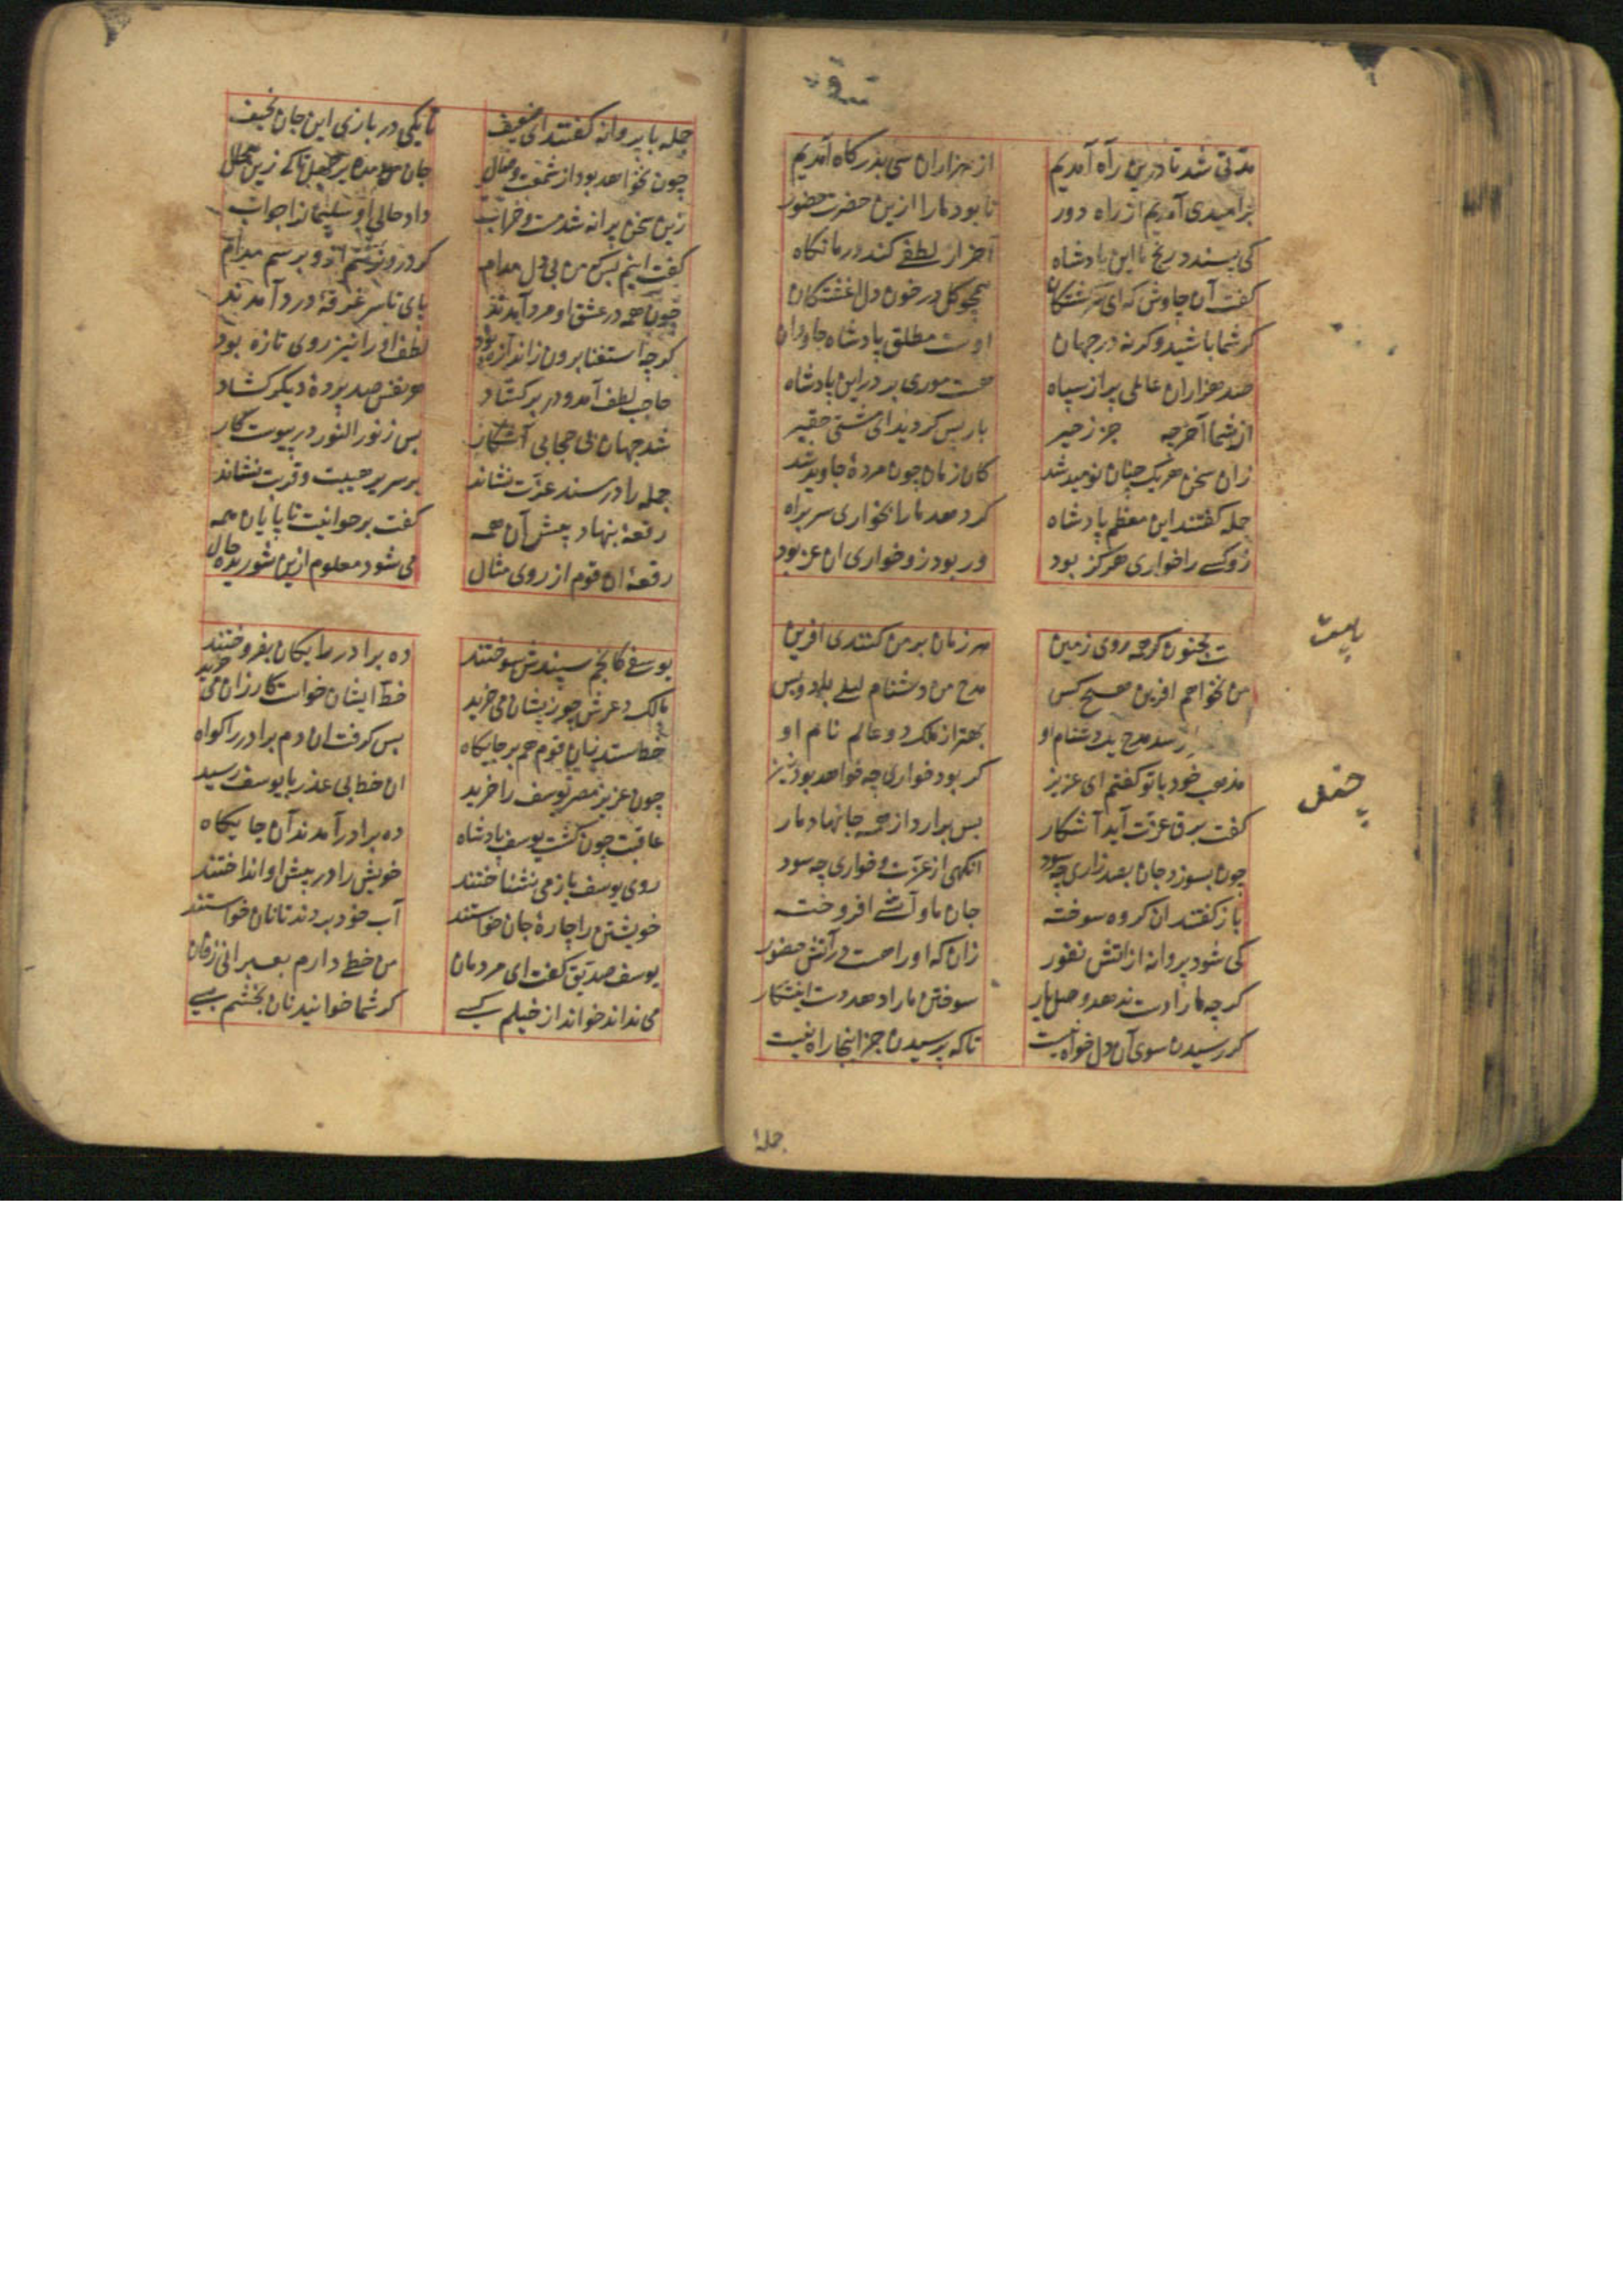 مدتی شد تا درین راه آمدیم از هزاران سی بدرکاه آمدیم
بر امیدی آمدیم از راه دور تا بود ما را ازین حضرت حضور
کی پسندد رنج ما این پادشاه آخر از لطفی کند در ما نکاه
کفت آن چاوش که ای سرکشتکان همچو کل در خون دل اغشتکان
کر شما باشید و کر نه در جهان اوست مطلق پادشاه جاودان
صد هزاران عالمی پر از سپاه هست موری بر در این پادشاه
از شما آخر چه جز زحیر باز پس کردید ای مشتی حقیر
زان سخن هر یک چنان نومید شد کان زمان چون مردهٔ جاوید شد
جمله کفتند این معظم پادشاه کر دهد ما را بخواری سر براه
زو کسی را خواری هرکز بود ور بود زو خواری ان عز بود
کفت مجنون کر همه روی زمین هر زمان بر من کنندی افرین
من نخواهم افرین هیچ کس مدح من دشنام لیلی باد و بس
مدح یک دشنام او بهتر از ملک دو عالم نام او
مذهب خود با تو کفتم ای عزیز کر بود خواری چه خواهد بود نیز
کفت برق عزت آید آشکار پس برارد از همه جانها دمار
چون بسوزد جان بصد زاری چه سود انکهی از عزت و خواری چه سود
باز کفتند ان کروه سوخته جان ما و آتشی افروخته
کی شود پروانه از اتش نفور زان که او را هست در آتش حضور
کر چه ما را دست ندهد وصل یار سوختن ما را دهد دست اینت کار
کر رسیدن سوی آن دل خواه نیست تاکه پرسیدن جز اینجا راه نیست
جمله
جمله با پروانه کفتند ای ضعیف تا بکی در بازی این جان نحیف
چون نخواهد بود از شمعت وصال جان مده بر جهل تا کی زین محال
زین سخن پروانه شد مست و خراب داد حالی او سلیمان را جواب
کفت اینم بس که من بی دل مدام کر درو نرسم درو برسم مدام
چون همه در عشق او مرد آمدند پای تا سر غرقهٔ درد آمدند
کرچه استغنا برون ز اندازه بود لطف او را نیز روی تازه بود
حاجب لطف آمد و در بر کشاد هر نفس صد پردهٔ دیکر کشاد
شد جهان بی حجابی آشکار پس ز نور النور در پیوست کار
جمله را در مسند عزت نشاند بر سریر هیبت و قربت نشاند
رقعهٔ بنهاد پیش آن همه کفت برخوانیت تا پایان همه
رقعهٔ ان قوم از روی مثال می شود معلوم ازین شوریده حال
یوسفی کانجم سپندش سوختند ده برادر رایکان بفروختند
مالک دعرش چو زیشان می خرید خط ایشان خواست کارزان می خرید
خط ستد زان قوم هم بر جایکاه پس کرفت ان دم برادر را کواه
چون عزیز مصر یوسف را خرید ان خط بی عذر با یوسف رسید
عاقبت چون کشت یوسف پادشاه ده برادر آمدند آن جایکاه
روی یوسف باز می نشناختند خویش را در پیش او انداختند
خویشتن را چارهٔ جان خواستند آب خود بردند تا نان خواستند
یوسف صدیق کفت ای مردمان من خطی دارم بعبرانی زفان
می نداند خواند از خیلم کسی کر شما خوانید نان بخشم بسی